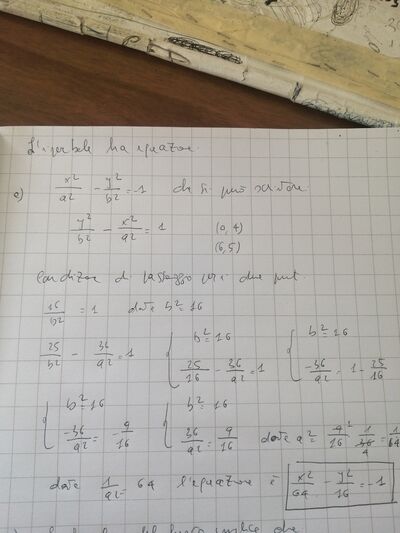 L'iperbole ha equazione.
e) x²/a² - y²/b² = -1 che si può scrivere
y²/b² - x²/a² = 1 (0,4)
(6,5)
Condizione di passaggio per i due punti
16/b² = 1 da te b² = 16
25/b² - 36/a² = 1 { b² = 16 { b² = 16
25/16 - 36/a² = 1 -36/a² = 1 - 25/16
{ b² = 16 { b² = 16
-36/a² = -9/16 36/a² = 9/16 da te a² = 9/16 · 1/36 4 = 1/64
da te 1/a² = 64 l'equazione è x²/64 - y²/16 = -1